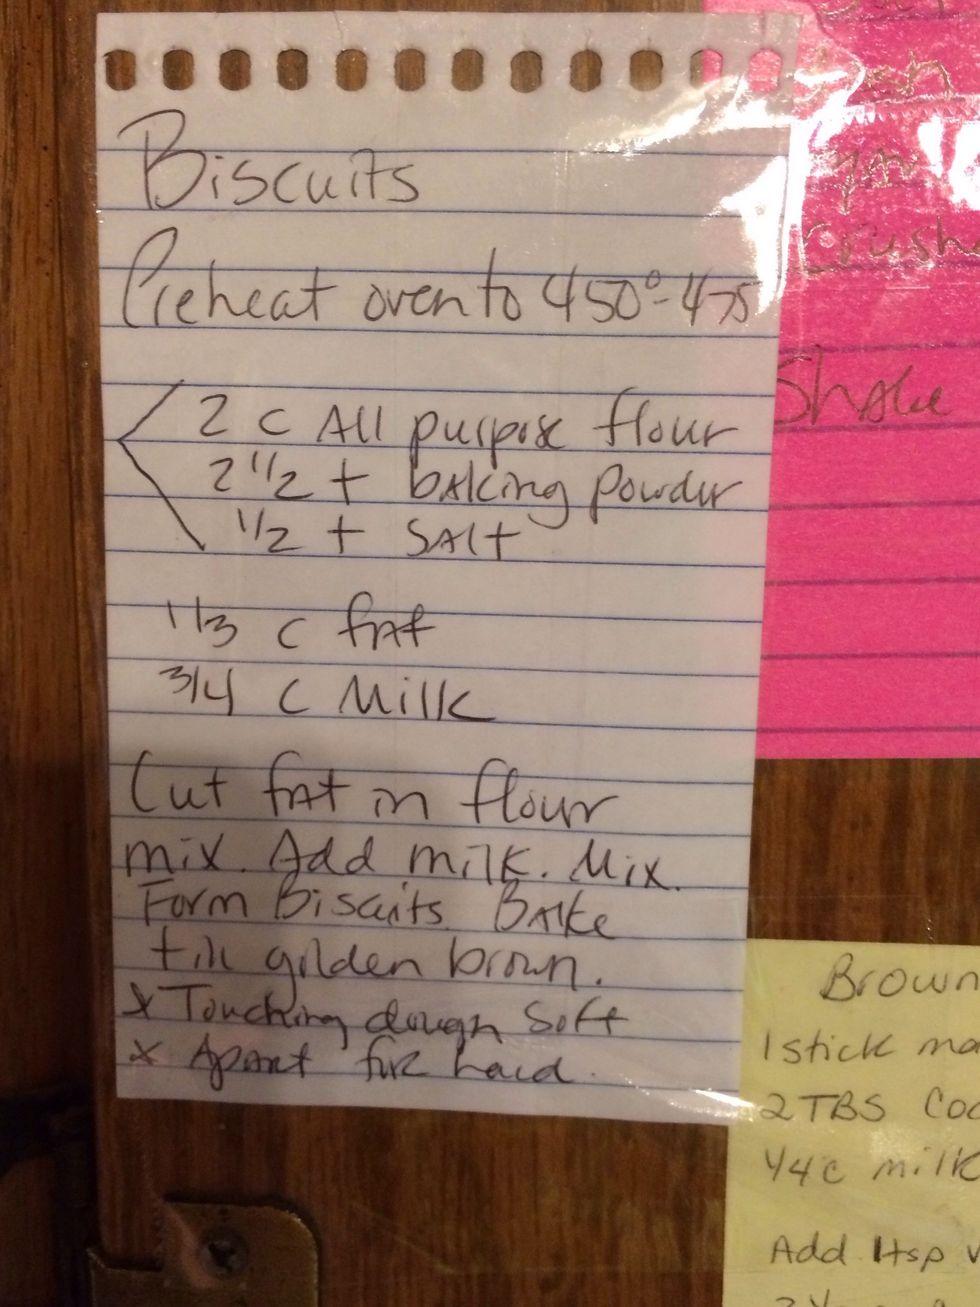 Biscuits
Preheat oven to 450°-475
2 c All purpose flour
2 1/2 t baking powder
1/2 t SAlt
1/3 c fAt
3/4 c Milk
Cut fAt in flour
mix. Add milk. Mix.
Form Biscuits. BAke
till golden brown.
* Touching dough soft
* Apart for hard.
Crush
Shake
Brown
1 stick ma
2 TBS Coc
1/4 c milk
Add 1tsp v